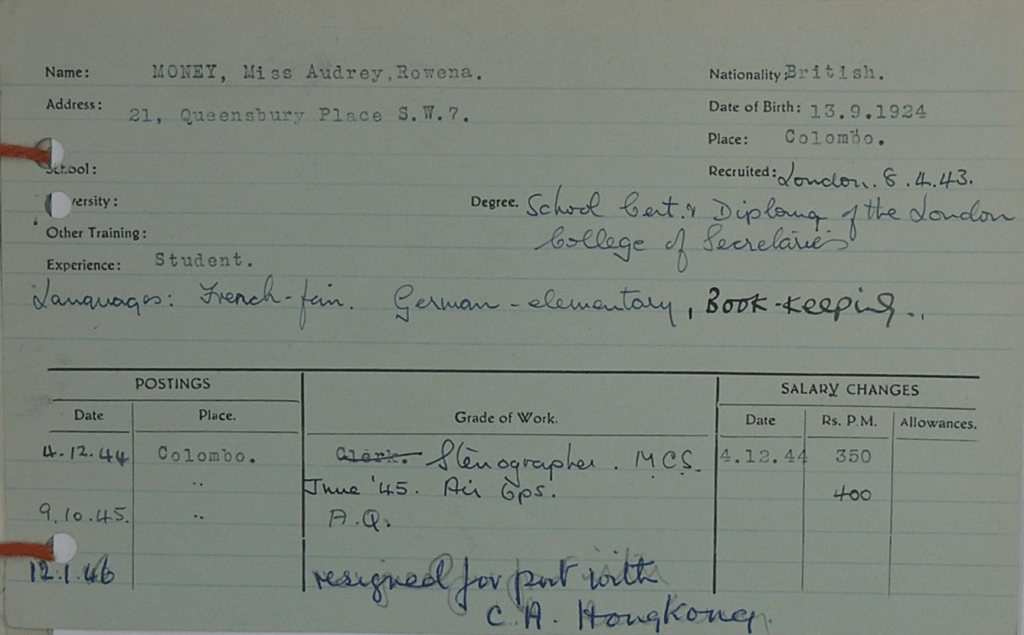 Name: MONEY, Miss Audrey,Rowena. Nationality: British.
Address: 21, Queensbury Place S.W.7. Date of Birth: 13.9.1924
Place: Colombo.
School: Recruited: London. 8.4.43.
versity: Degree. School Cert. & Diploma of the London
Other Training: College of Secretaries
Experience: Student.
Languages: French-fair. German-elementary, Book-keeping..
POSTINGS SALARY CHANGES
Date Place. Grade of Work. Date Rs. P.M. Allowances.
4.12.44 Colombo. Clerk. Stenographer. M.C.S. 4.12.44 350
.. June '45. Air Ops. 400
9.10.45. .. A.Q.
12.1.46 resigned for post with
C.A. Hongkong.